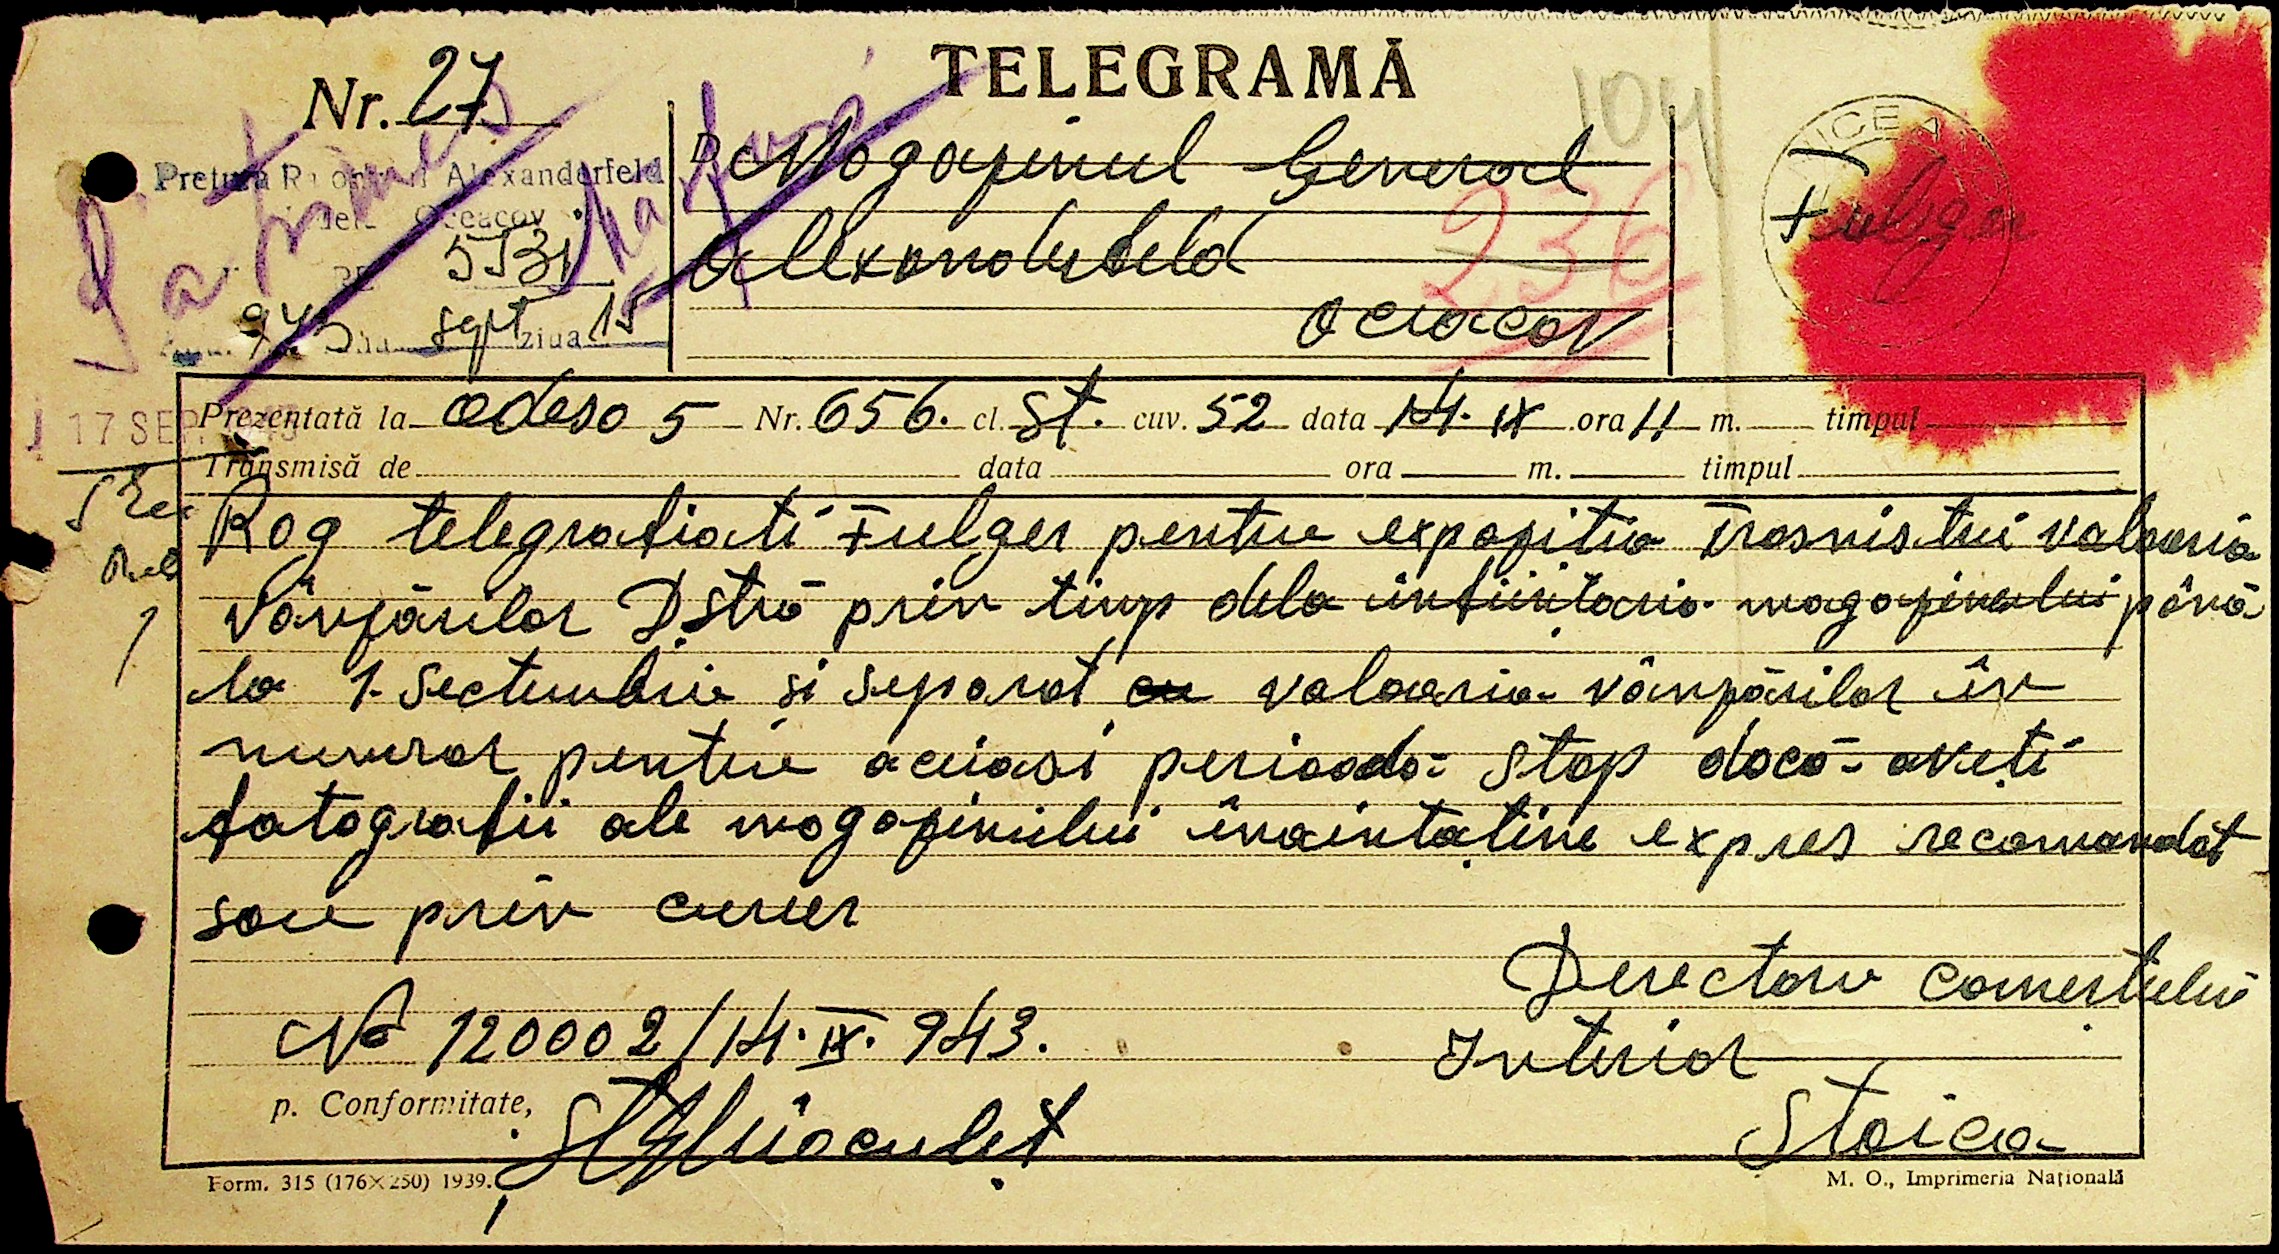 TELEGRAMĂ
Nr. 27
104
Pretura Raionului Alexanderfeld
Oceacov
5531
943 Luna Sept ziua 15
D Magazinul General
Alexanderfeld
Oceacov
236
Fulger
17 SEP.
Prezentată la Odesa 5 Nr. 656. cl. St. cuv. 52 data 14. IX ora 11 m. timpul
Transmisă de data ora m. timpul
Rog telegrafiati Fulger pentru expozitia Trasnistrei valoaria
vânzărilor Dstră prin timp dela înfiintaria magazinului până
la 1. Sectembrie si separat valoaria vânzărilor în
numerar pentru aceiasi perioadă Stop dacă aveti
fotografii ale magazinului înaintatine expres recomandat
sau prin curier
Derectoru Comertului
Interior
Stoica
No 120002/14.IX.943.
p. Conformitate,
Form. 315 (176×250) 1939.
M. O., Imprimeria Națională